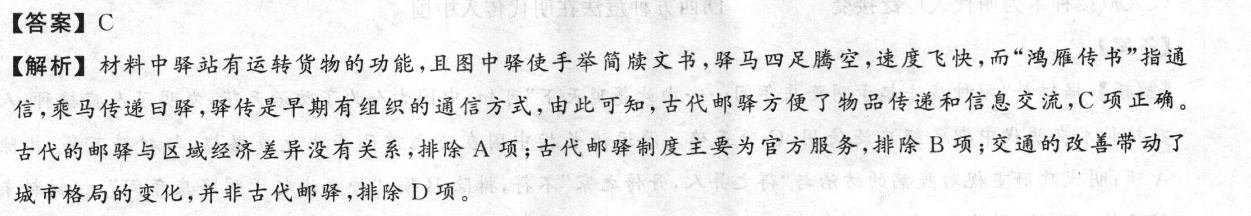 【答案】C
【解析】材料中驿站有运转货物的功能,且图中驿使手举简牍文书,驿马四足腾空,速度飞快,而“鸿雁传书”指通
信,乘马传递曰驿,驿传是早期有组织的通信方式,由此可知,古代邮驿方便了物品传递和信息交流,C项正确。
古代的邮驿与区域经济差异没有关系,排除A项;古代邮驿制度主要为官方服务,排除B项;交通的改善带动了
城市格局的变化,并非古代邮驿,排除D项。